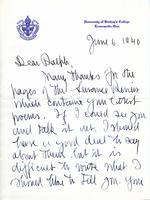 University of Bishop's College
Lennoxville, Que.
June 6, 1940
Dear Ralph:
Many thanks for the
pages of the Sewanee Review
which contains your latest
poems. If I could see you
and talk it out, I should
have a good deal to say
about them but it is
difficult to write what I
should like to tell you. You